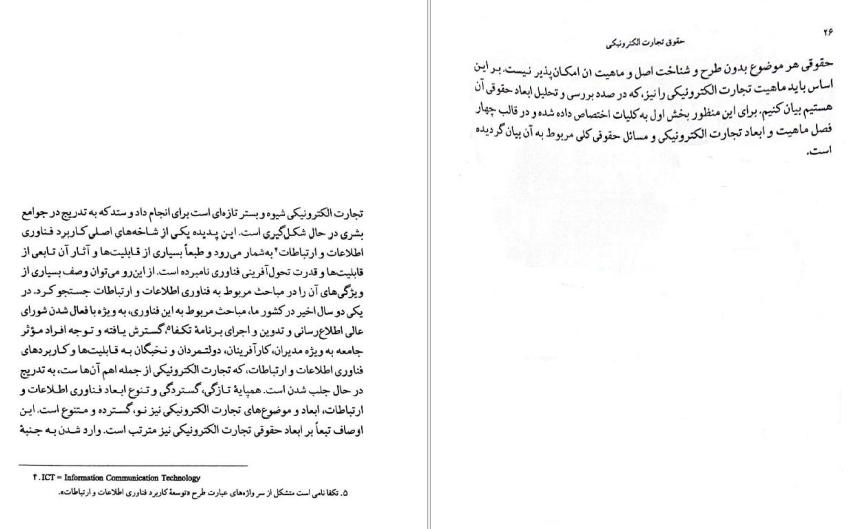 تجارت الکترونیکی شیوه و بستر تازه‌ای است برای انجام داد و ستد که به تدریج در جوامع
بشری در حال شکل‌گیری است. این پدیده یکی از شاخه‌های اصلی کاربرد فناوری
اطلاعات و ارتباطات۴ به‌شمار می‌رود و طبعاً بسیاری از قابلیت‌ها و آثار آن تابعی از
قابلیت‌ها و قدرت تحول‌آفرینی فناوری نامبرده است. از این‌رو می‌توان وصف بسیاری از
ویژگی‌های آن را در مباحث مربوط به فناوری اطلاعات و ارتباطات جستجو کرد. در
یکی دو سال اخیر در کشور ما، مباحث مربوط به این فناوری، به ویژه با فعال شدن شورای
عالی اطلاع‌رسانی و تدوین و اجرای برنامهٔ تکفا۵، گسترش یافته و توجه افراد مؤثر
جامعه به ویژه مدیران، کارآفرینان، دولتمردان و نخبگان به قابلیت‌ها و کاربردهای
فناوری اطلاعات و ارتباطات، که تجارت الکترونیکی از جمله اهم آن‌ها ست، به تدریج
در حال جلب شدن است. همپایهٔ تازگی، گستردگی و تنوع ابعاد فناوری اطلاعات و
ارتباطات، ابعاد و موضوع‌های تجارت الکترونیکی نیز نو، گسترده و متنوع است. این
اوصاف تبعاً بر ابعاد حقوقی تجارت الکترونیکی نیز مترتب است. وارد شدن به جنبهٔ
۴. ICT = Information Communication Technology
۵. تکفا نامی است متشکل از سر واژه‌های عبارت طرح «توسعهٔ کاربرد فناوری اطلاعات و ارتباطات».
۲۶
حقوق تجارت الکترونیکی
حقوقی هر موضوع بدون طرح و شناخت اصل و ماهیت آن امکان‌پذیر نیست. بر این
اساس باید ماهیت تجارت الکترونیکی را نیز، که در صدد بررسی و تحلیل ابعاد حقوقی آن
هستیم بیان کنیم. برای این منظور بخش اول به کلیات اختصاص داده شده و در قالب چهار
فصل ماهیت و ابعاد تجارت الکترونیکی و مسائل حقوقی کلی مربوط به آن بیان گردیده
است.